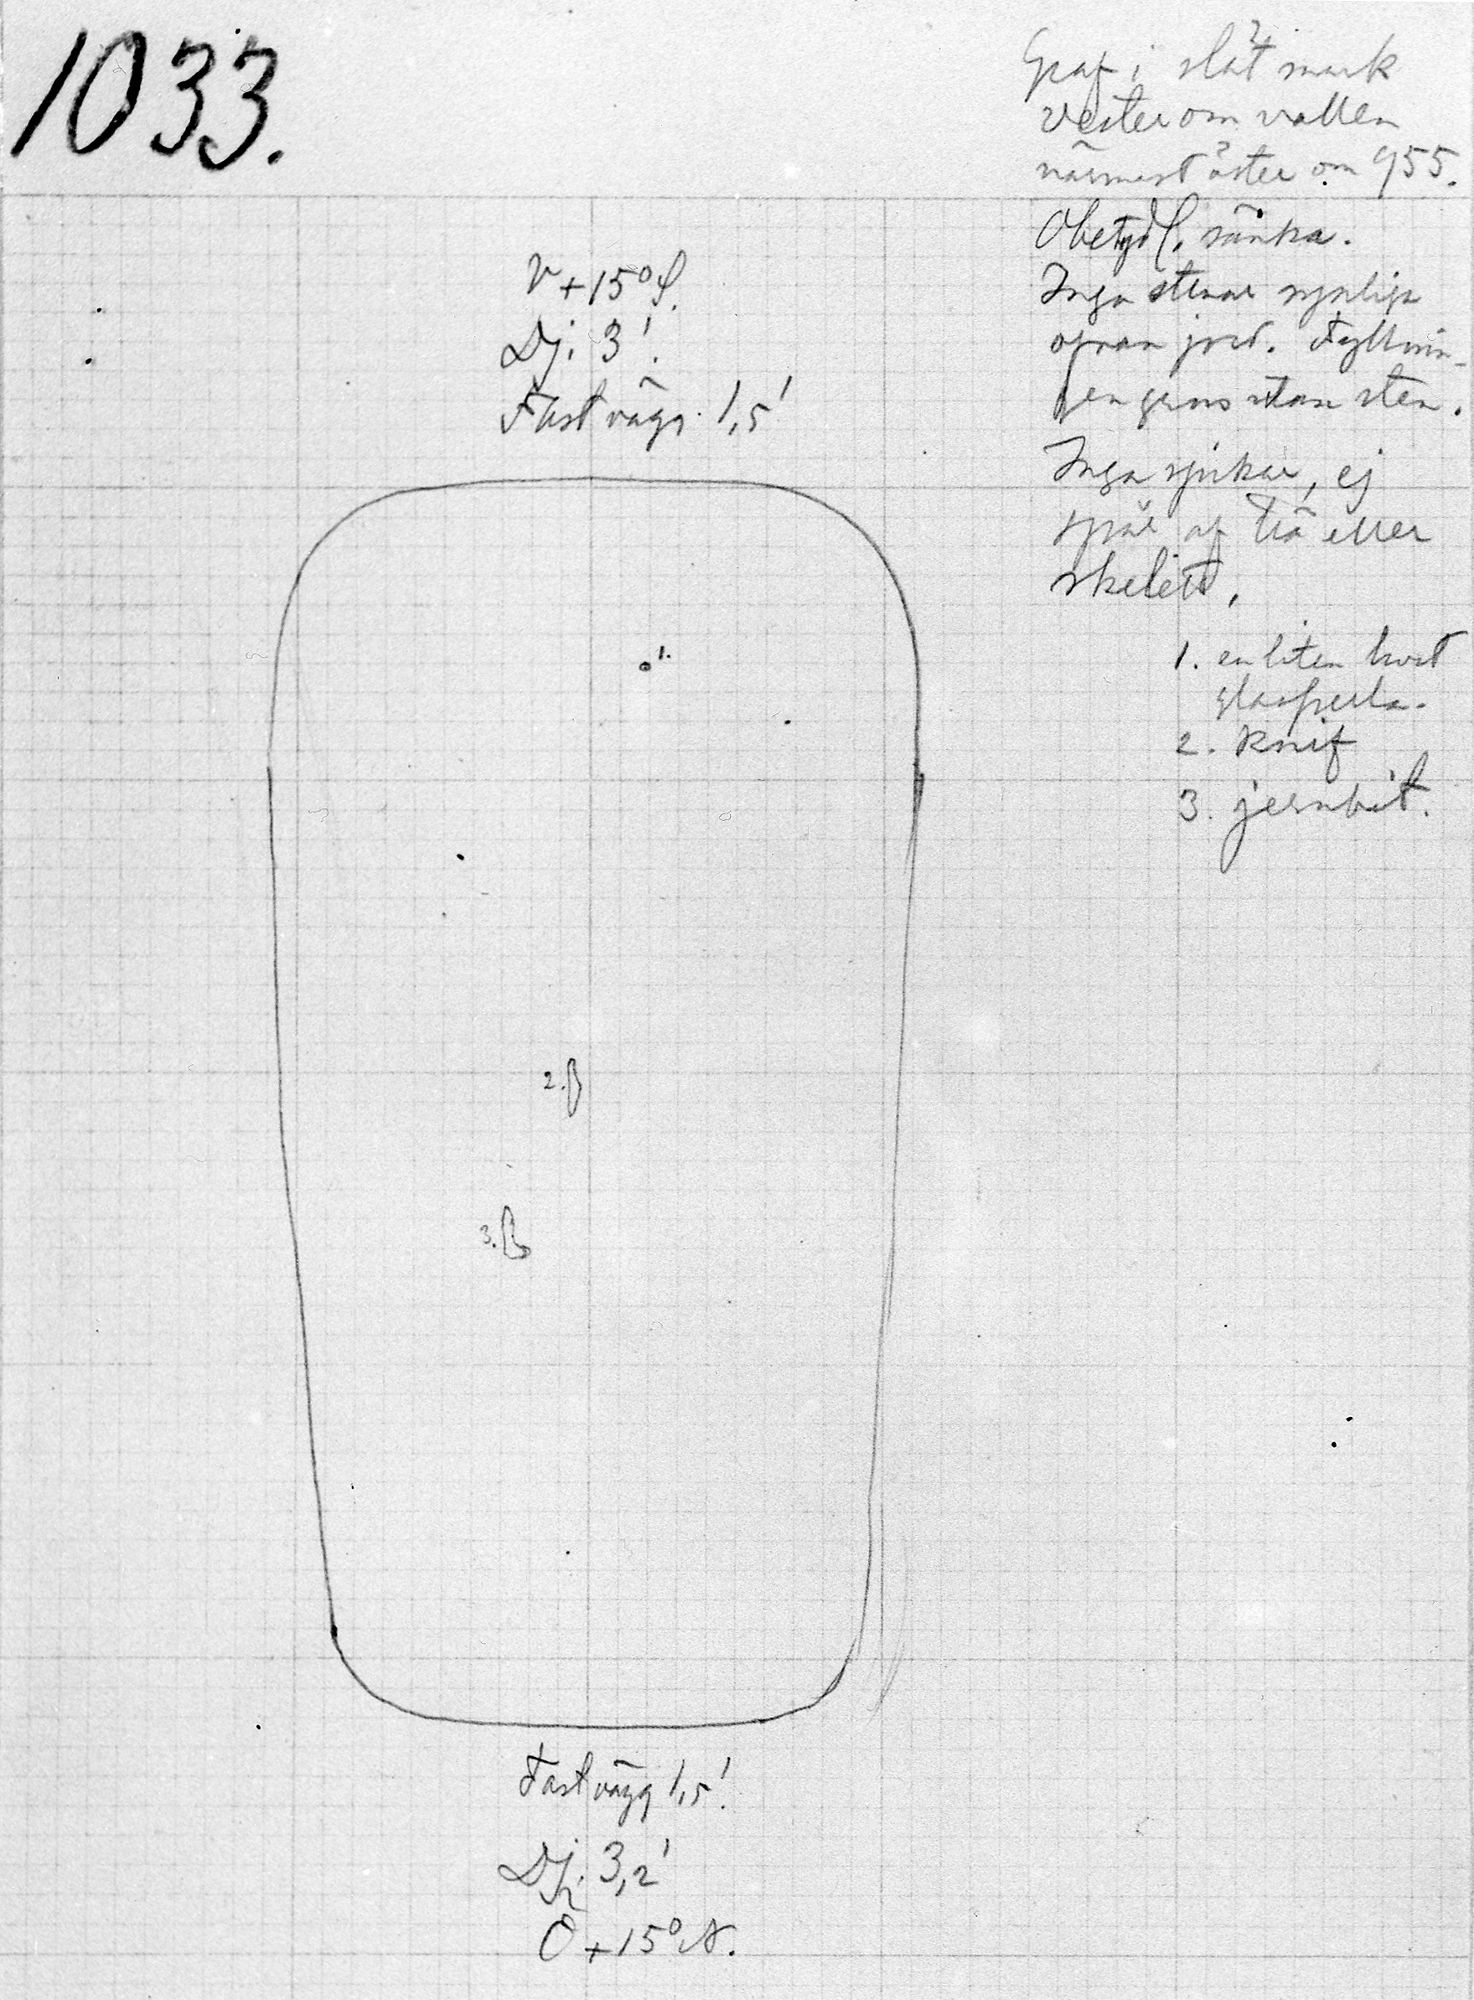 1033.
Graf i slät mark
vester om vallen
närmast öster om 955.
Obetydl. sänka.
Inga stenar synliga
ofvan jord. Fyllnin-
gen grus utan sten.
Inga spikar, ej
spår af trä eller
skelett.
1. en liten hvit
glasperla.
2. knif
3. jernbit.
V + 15° S.
Dj. 3'.
Fast vägg 1,5'
1.
2.
3.
Fast vägg 1,5'.
Dj. 3,2'
Ö + 15° N.